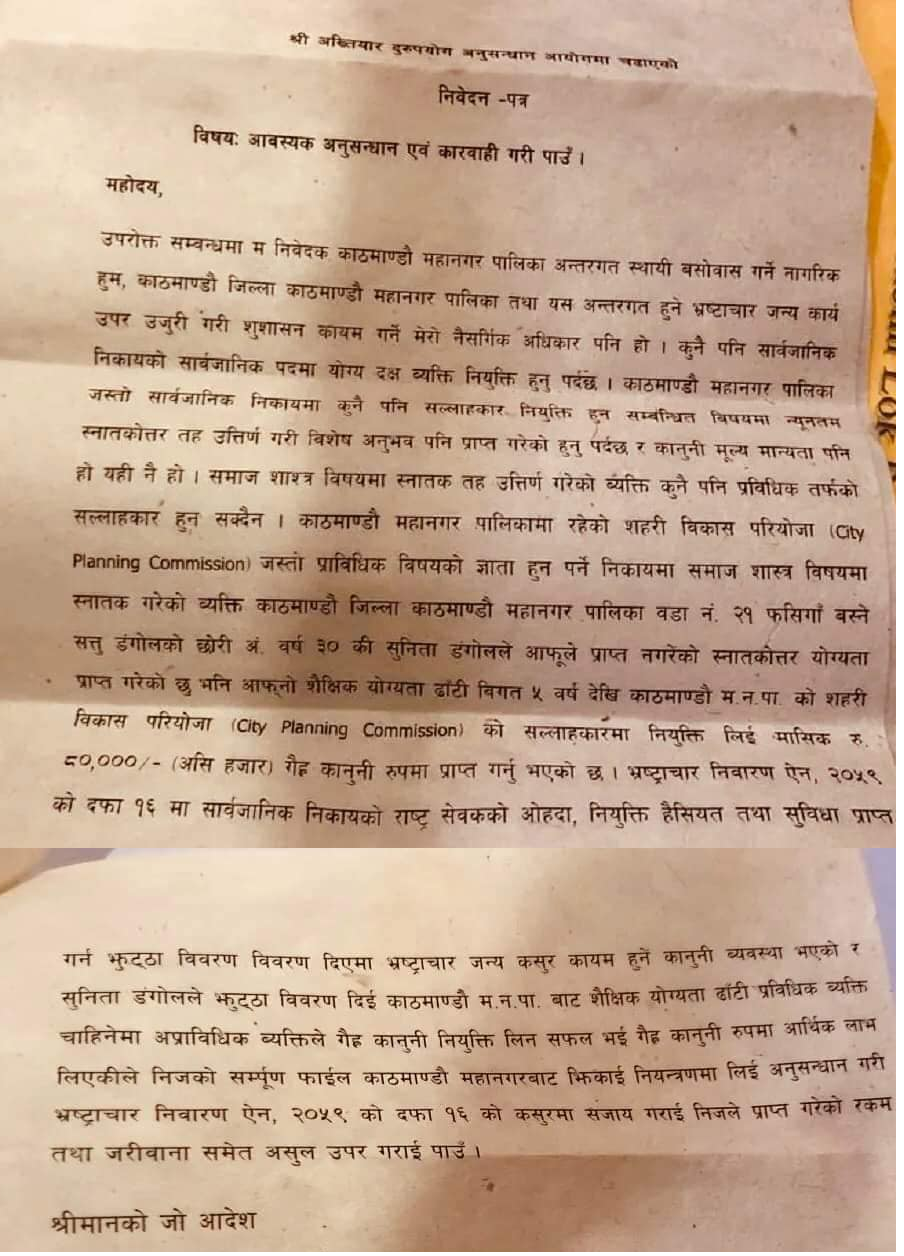 श्री अख्तियार दुरुपयोग अनुसन्धान आयोगमा चढाएको
निवेदन -पत्र
विषय: आवस्यक अनुसन्धान एवं कारवाही गरी पाउँ ।
महोदय,
उपरोक्त सम्बन्धमा म निवेदक काठमाण्डौ महानगर पालिका अन्तरगत स्थायी बसोवास गर्ने नागरिक
हुम, काठमाण्डौ जिल्ला काठमाण्डौ महानगर पालिका तथा यस अन्तरगत हुने भ्रष्टाचार जन्य कार्य
उपर उजुरी गरी शुशासन कायम गर्ने मेरो नैसर्गिक अधिकार पनि हो । कुनै पनि सार्वजानिक
निकायको सार्वजानिक पदमा योग्य दक्ष व्यक्ति नियुक्ति हुनु पर्दछ । काठमाण्डौ महानगर पालिका
जस्तो सार्वजानिक निकायमा कुनै पनि सल्लाहकार नियुक्ति हुन सम्बन्धित विषयमा न्यूनतम
स्नातकोत्तर तह उत्तिर्ण गरी विशेष अनुभव पनि प्राप्त गरेको हुनु पर्दछ र कानुनी मूल्य मान्यता पनि
हो यही नै हो । समाज शाश्त्र विषयमा स्नातक तह उत्तिर्ण गरेको व्यक्ति कुनै पनि प्रविधिक तर्फको
सल्लाहकार हुन सक्दैन । काठमाण्डौ महानगर पालिकामा रहेको शहरी विकास परियोजा (City
Planning Commission) जस्तो प्राविधिक विषयको ज्ञाता हुन पर्ने निकायमा समाज शास्त्र विषयमा
स्नातक गरेको व्यक्ति काठमाण्डौ जिल्ला काठमाण्डौ महानगर पालिका वडा नं. २१ फसिगाँ बस्ने
सत्तु डंगोलको छोरी अं. वर्ष ३० की सुनिता डंगोलले आफूले प्राप्त नगरेको स्नातकोत्तर योग्यता
प्राप्त गरेको छु भनि आफ्नो शैक्षिक योग्यता ढाँटी बिगत ५ वर्ष देखि काठमाण्डौ म.न.पा. को शहरी
विकास परियोजा (City Planning Commission) को सल्लाहकारमा नियुक्ति लिई मासिक रु.
८०,०००/- (असि हजार) गैह्र कानुनी रुपमा प्राप्त गर्नु भएको छ । भ्रष्ट्राचार निवारण ऐन, २०५९
को दफा १६ मा सार्वजानिक निकायको राष्ट्र सेवकको ओहदा, नियुक्ति हैसियत तथा सुविधा प्राप्त
गर्न झुट्ठा विवरण विवरण दिएमा भ्रष्ट्राचार जन्य कसुर कायम हुने कानुनी ब्यवस्था भएको र
सुनिता डंगोलले झुट्ठा विवरण दिई काठमाण्डौ म.न.पा. बाट शैक्षिक योग्यता ढाँटी प्रविधिक व्यक्ति
चाहिनेमा अप्राविधिक ब्यक्तिले गैह्र कानुनी नियुक्ति लिन सफल भई गैह्र कानुनी रुपमा आर्थिक लाभ
लिएकीले निजको सर्म्पूण फाईल काठमाण्डौ महानगरबाट झिकाई नियन्त्रणमा लिई अनुसन्धान गरी
भ्रष्ट्राचार निवारण ऐन, २०५९ को दफा १६ को कसुरमा सजाय गराई निजले प्राप्त गरेको रकम
तथा जरीवाना समेत असुल उपर गराई पाउँ ।
श्रीमानको जो आदेश